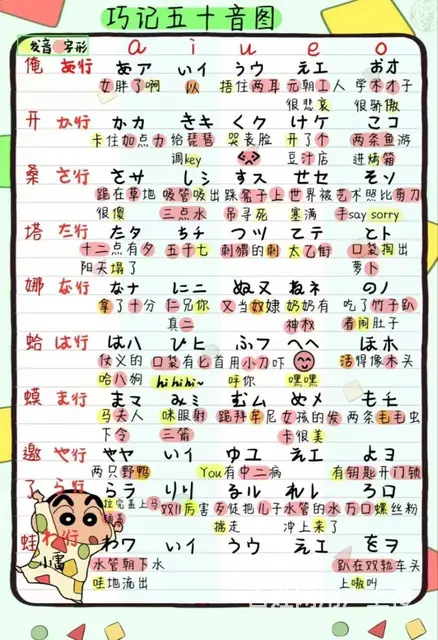 巧记五十音图
发音 字形 a i u e o
俺 あ行 あア いイ うウ えエ おオ
女胖了啊 以 捂住两耳 元朝工人 学术才子
很悲哀 很骄傲
开 か行 かカ きキ くク けケ こコ
卡住加点力 给琵琶 哭丧脸 开了个 两条鱼游
调key 豆汁店 进烤箱
桑 さ行 さサ しシ すス せセ そソ
跪在草地 吸管吸出 踩凳子上 世界被艺术照比剪刀
很傻 三点水 吊寻死 塞满 手say sorry
塔 た行 たタ ちチ つツ てテ とト
十二点有夕 五千七 刺猬的刺 太乙街 口袋掏出
阳天塌了 萝卜
娜 な行 なナ にニ ぬヌ ねネ のノ
拿了十分 仁兄你 又当奴婢 奶奶有 吃了竹子趴
真二 神权 着闹肚子
蛤 は行 はハ ひヒ ふフ へヘ ほホ
仗义的 口袋有匕首用小刀吓 活得像木头
哈八狗 hihihi~ 呼你 嘿嘿
蟆 ま行 まマ みミ むム めメ もモ
马夫人 咪眼射 跪拜牟尼 女孩的发 两条毛毛虫
下令 三箭 卡很美
邀 や行 やヤ いイ ゆユ えエ よヨ
两只野鸭 You有中二病 有钥匙开门锁
了 ら行 らラ りリ るル れレ ろロ
拉完盖上马 双11厉害 歹徒把儿子 水管的水 万口螺丝粉
撸走 冲上来了
蛙 わ行 わワ いイ うウ えエ をヲ
小雷 水管朝下水 趴在双轨车头
哇地流出 上嗷叫